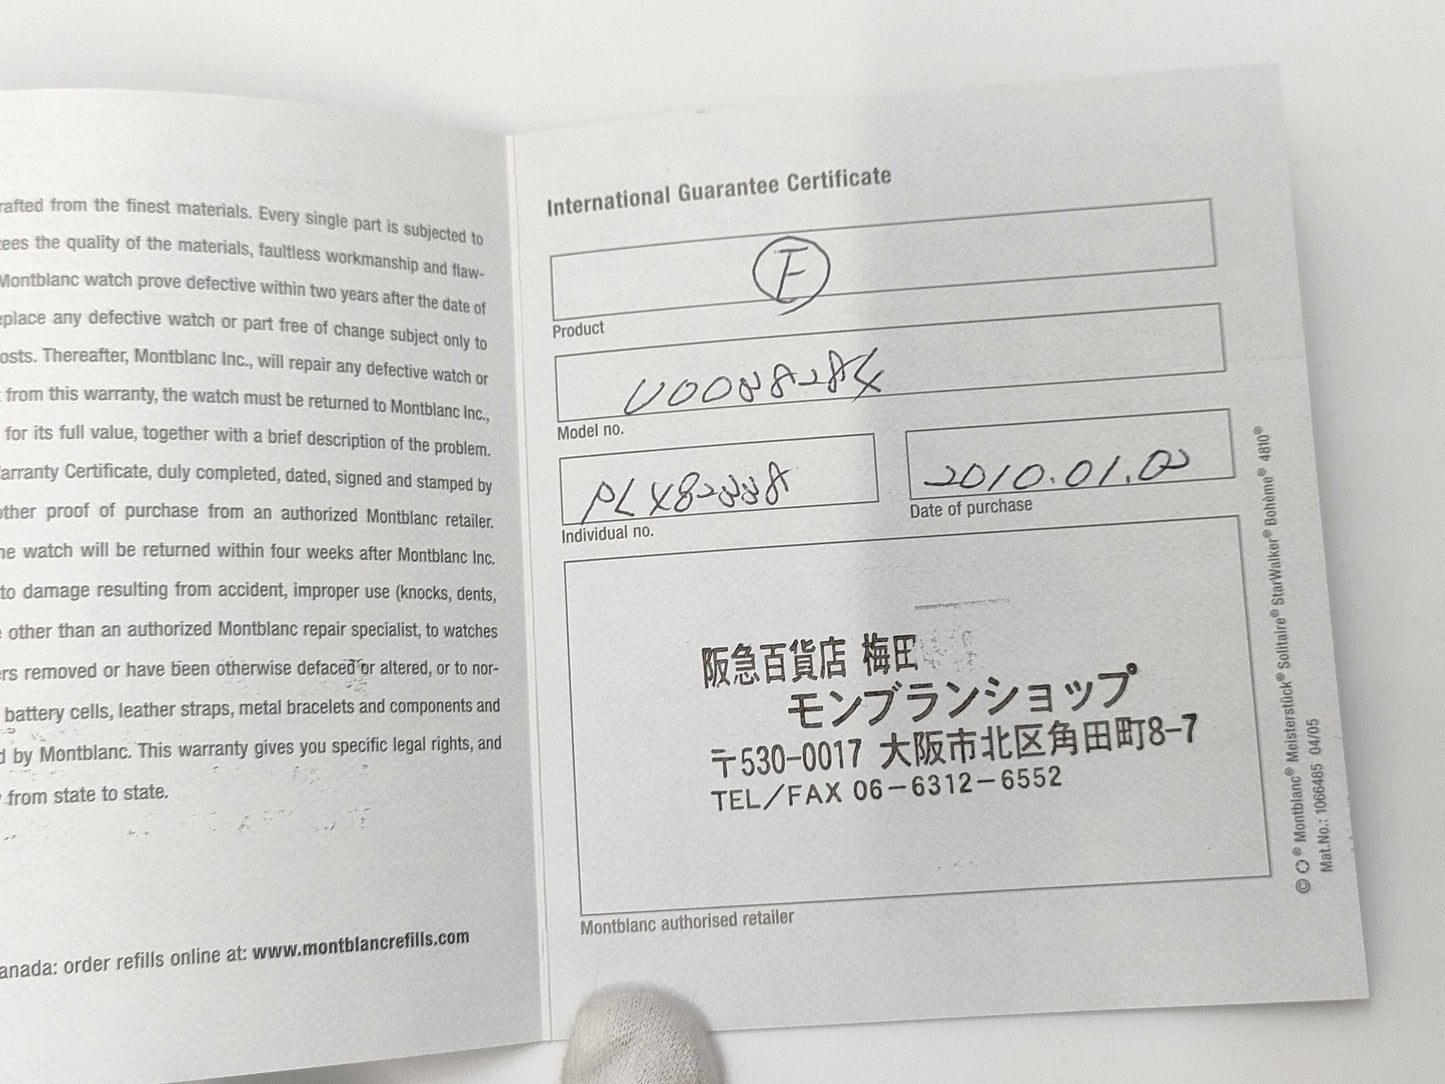 rafted from the finest materials. Every single part is subjected to
ees the quality of the materials, faultless workmanship and flaw-
Montblanc watch prove defective within two years after the date of
eplace any defective watch or part free of change subject only to
osts. Thereafter, Montblanc Inc., will repair any defective watch or
from this warranty, the watch must be returned to Montblanc Inc.,
for its full value, together with a brief description of the problem.
arranty Certificate, duly completed, dated, signed and stamped by
other proof of purchase from an authorized Montblanc retailer.
he watch will be returned within four weeks after Montblanc Inc.
to damage resulting from accident, improper use (knocks, dents,
other than an authorized Montblanc repair specialist, to watches
ers removed or have been otherwise defaced or altered, or to nor-
battery cells, leather straps, metal bracelets and components and
d by Montblanc. This warranty gives you specific legal rights, and
from state to state.
anada: order refills online at: www.montblancrefills.com
International Guarantee Certificate
F
Product
Model no.
Individual no.
2010.01.
Date of purchase
阪急百貨店 梅田
モンブランショップ
〒530-0017 大阪市北区角田町8-7
TEL/FAX 06-6312-6552
Montblanc authorised retailer
© ® Montblanc® Meisterstück® Solitaire® StarWalker® Bohème® 4810®
Mat.No.: 1066485 04/05